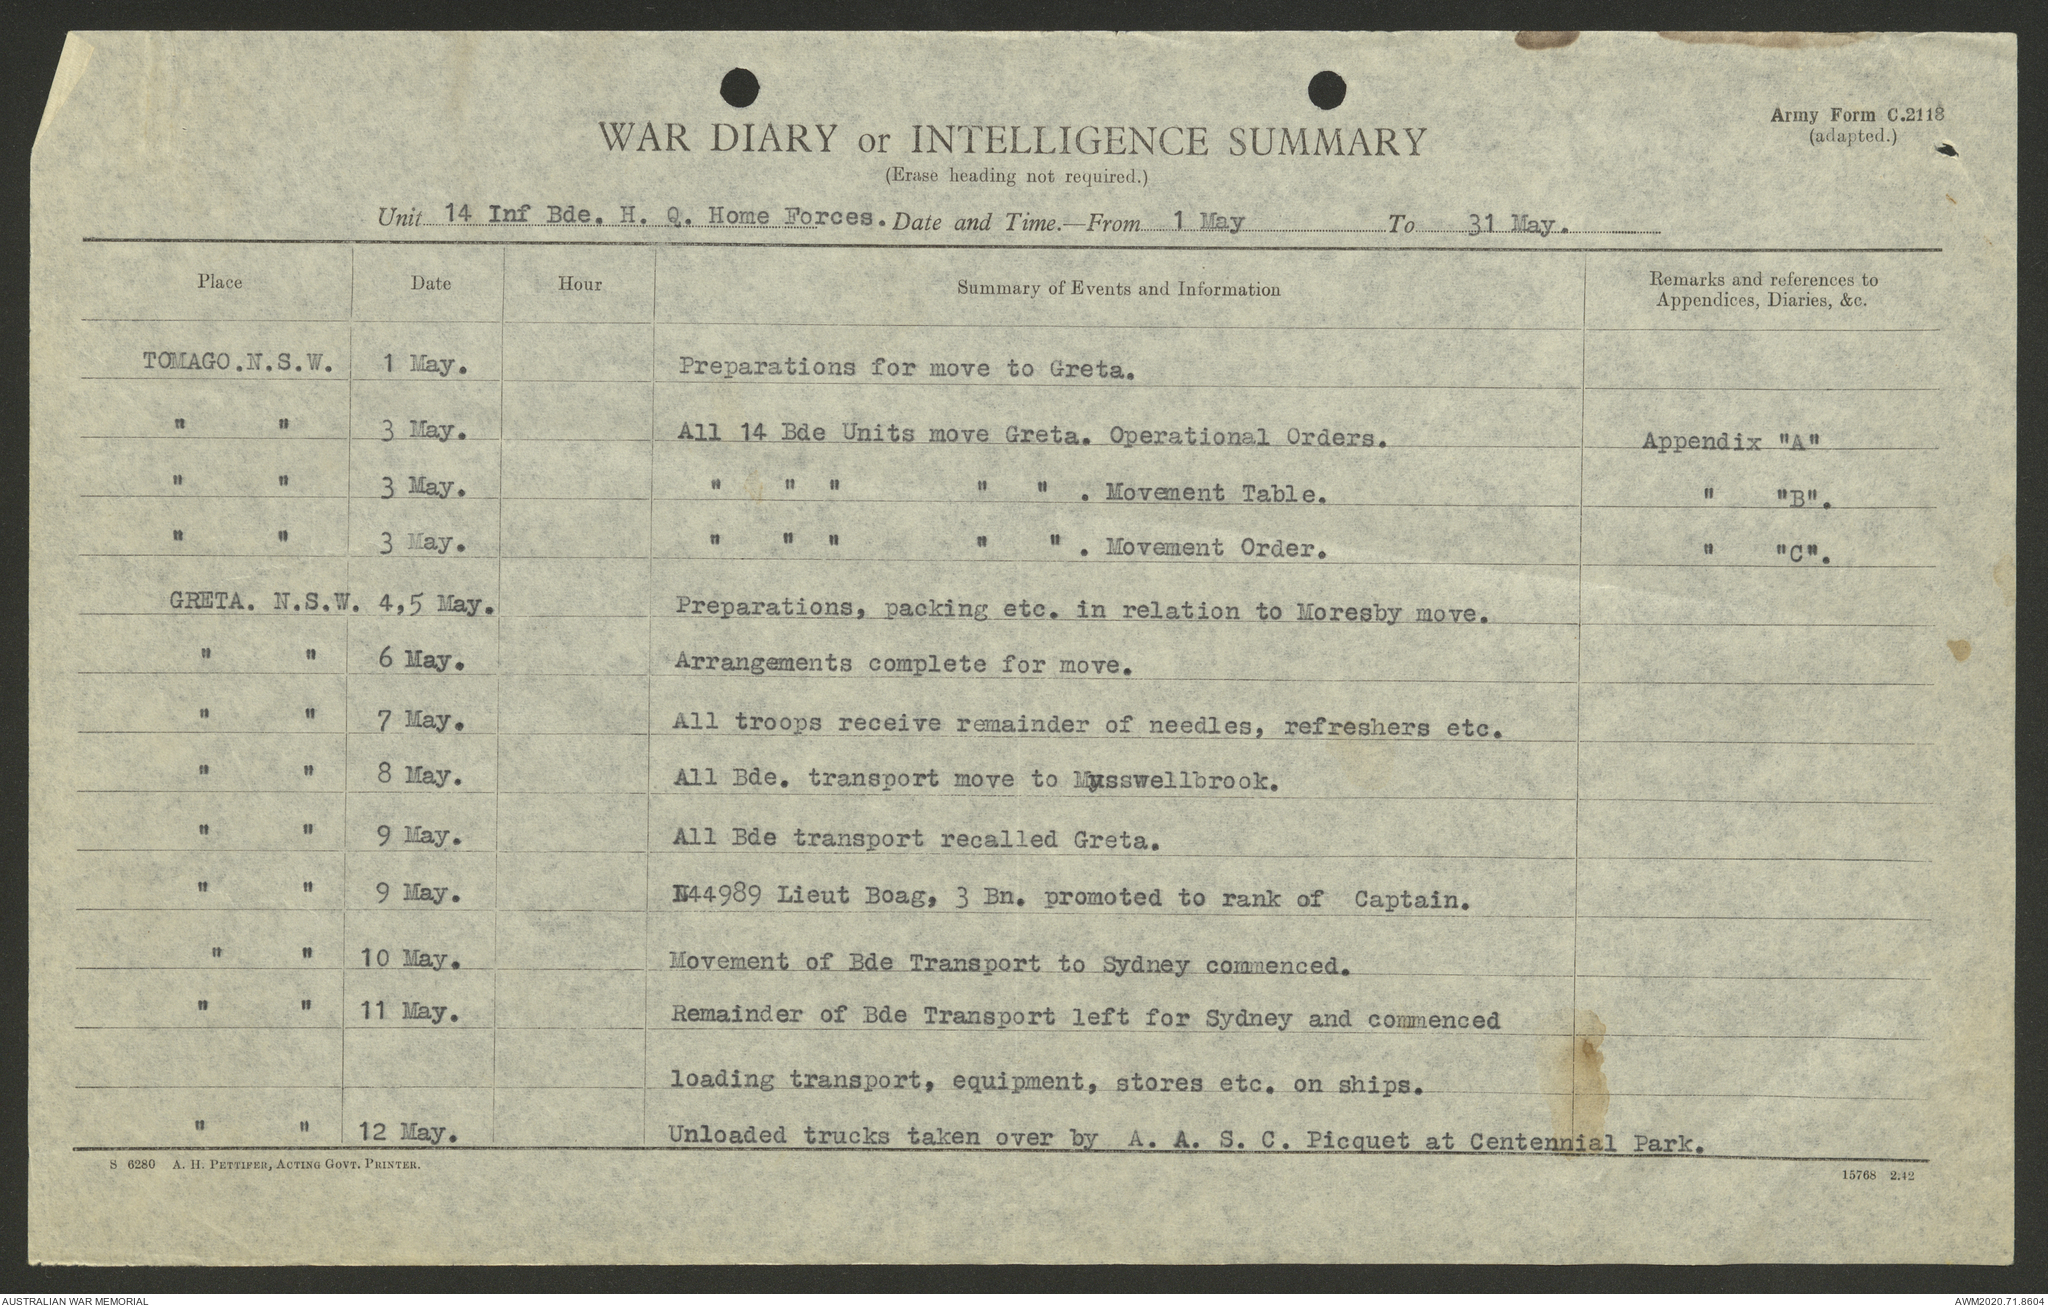 Army Form C.2118
(adapted.)
WAR DIARY or INTELLIGENCE SUMMARY
(Erase heading not required.)
Unit 14 Inf Bde. H. Q. Home Forces. Date and Time.—From 1 May To 31 May.
Place Date Hour Summary of Events and Information Remarks and references to Appendices, Diaries, &c.
TOMAGO.N.S.W. 1 May. Preparations for move to Greta.
" " 3 May. All 14 Bde Units move Greta. Operational Orders. Appendix "A"
" " 3 May. " " " " " . Movement Table. " "B".
" " 3 May. " " " " " . Movement Order. " "C".
GRETA. N.S.W. 4,5 May. Preparations, packing etc. in relation to Moresby move.
" " 6 May. Arrangements complete for move.
" " 7 May. All troops receive remainder of needles, refreshers etc.
" " 8 May. All Bde. transport move to Musswellbrook.
" " 9 May. All Bde transport recalled Greta.
" " 9 May. N44989 Lieut Boag, 3 Bn. promoted to rank of Captain.
" " 10 May. Movement of Bde Transport to Sydney commenced.
" " 11 May. Remainder of Bde Transport left for Sydney and commenced
loading transport, equipment, stores etc. on ships.
" " 12 May. Unloaded trucks taken over by A. A. S. C. Picquet at Centennial Park.
S 6280 A. H. PETTIFER, ACTING GOVT. PRINTER.
15768 2.42
AUSTRALIAN WAR MEMORIAL
AWM2020.71.8604